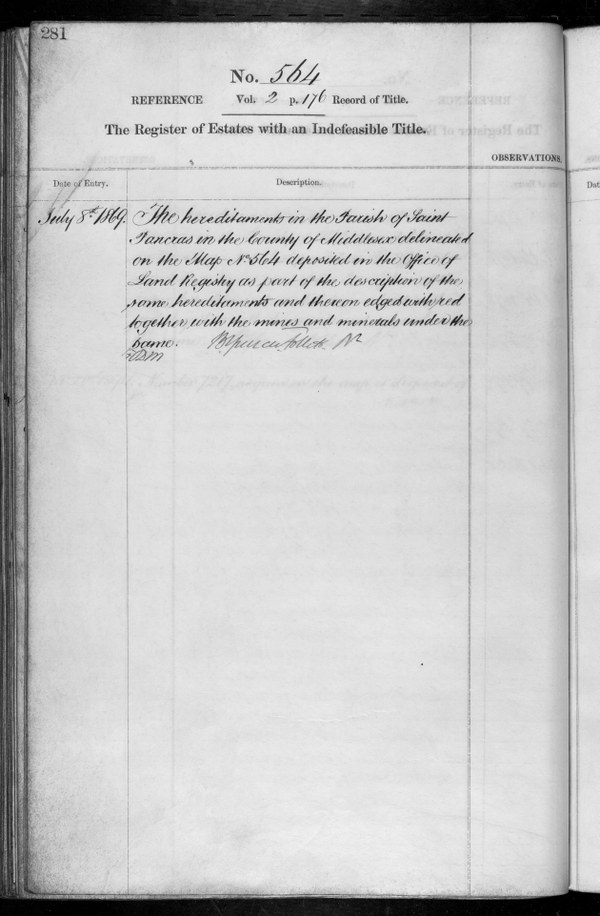 281
No. 564
REFERENCE Vol. 2 p. 176 Record of Title.
The Register of Estates with an Indefeasible Title.
OBSERVATIONS.
Date of Entry. Description.
July 8th 1869. The hereditaments in the Parish of Saint
Pancras in the County of Middlesex delineated
on the Map No 564 deposited in the Office of
Land Registry as part of the description of the
same hereditaments and thereon edged with red
together with the mines and minerals under the
same.
Dat